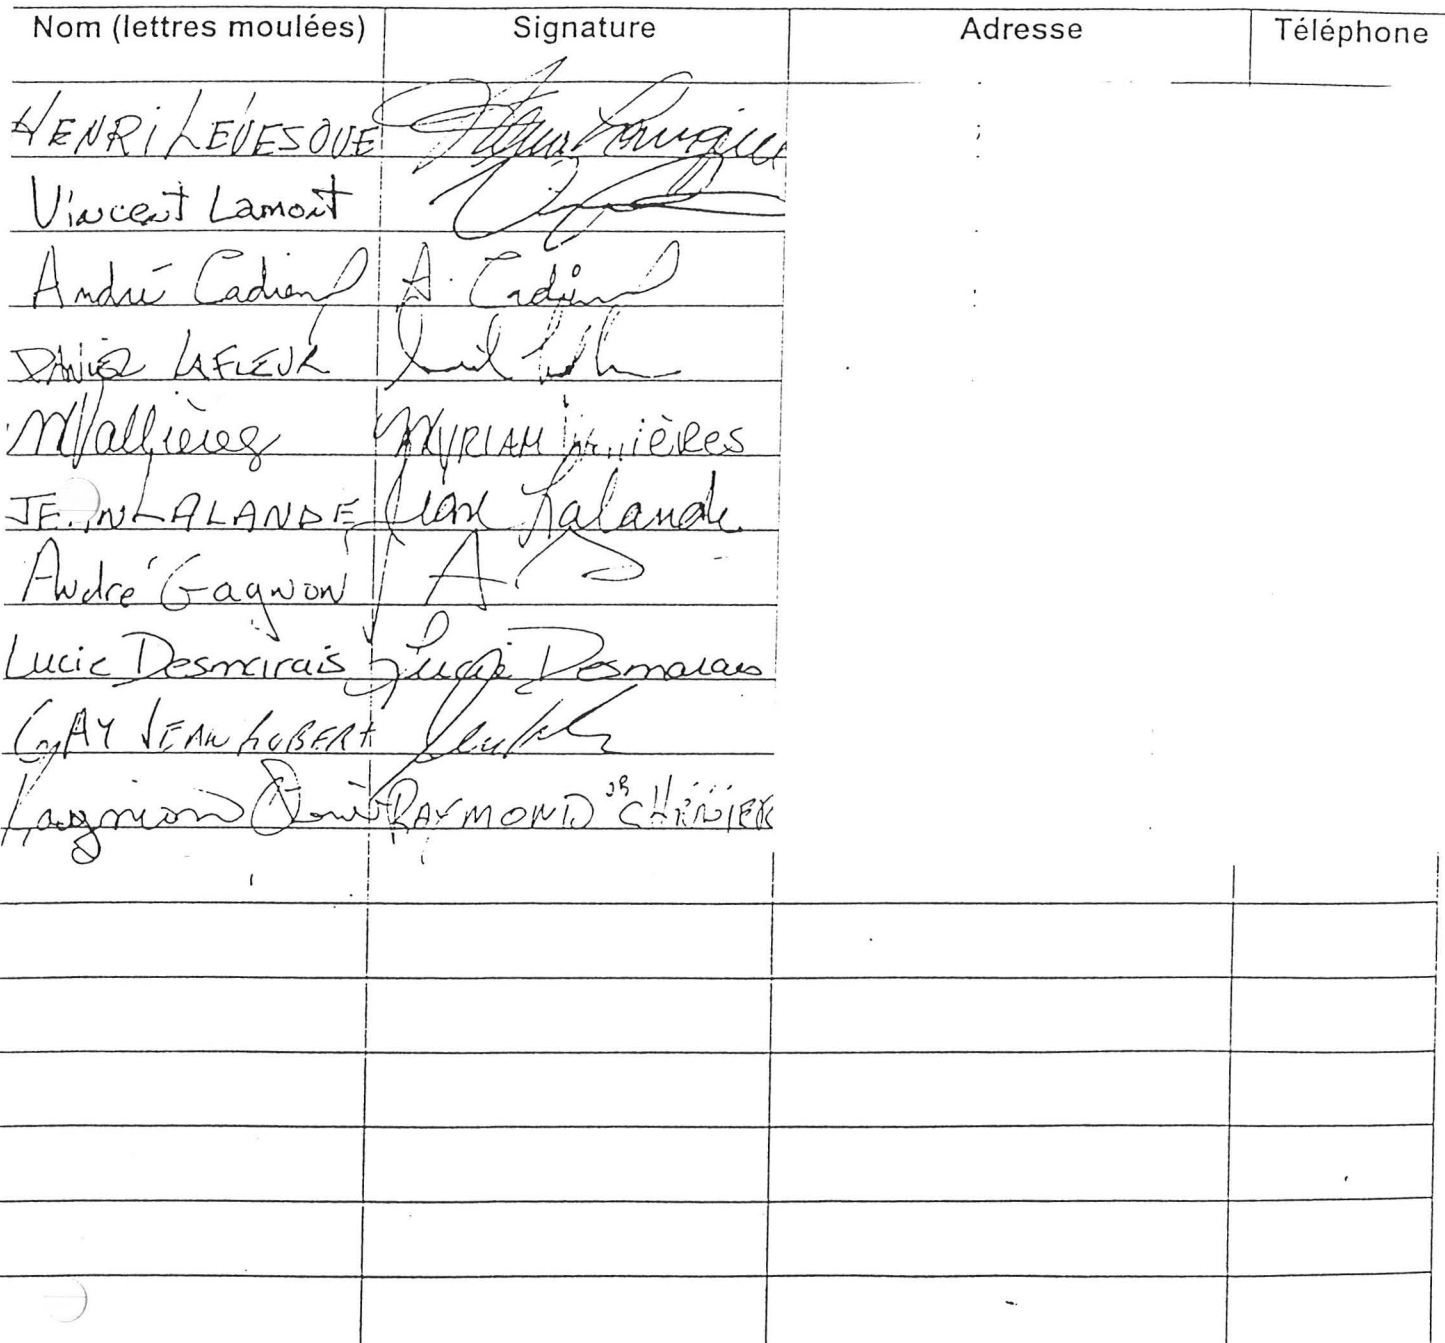 Nom (lettres moulées) Signature Adresse Téléphone
HENRI LÉVESQUE
Vincent Lamont
André Cadieux A. Cadieux
DANIEL LAFLEUR
MVallières MYRIAM
JEAN LALANDE Jean Lalande
André Gagnon A. G
Lucie Desmarais Lucie Desmarais
GAY JEAN HUBERT
RAYMOND CHÉNIER